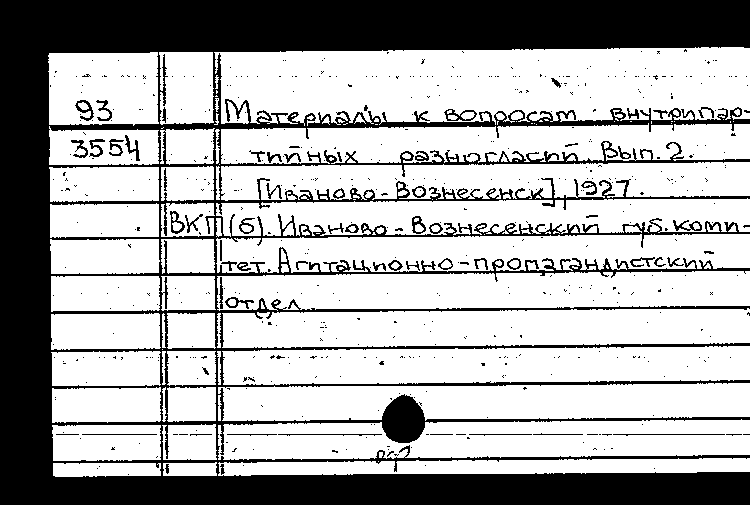 93 Материалы к вопросам внутрипар-
3554 тийных разногласий. Вып. 2.
[Иваново-Вознесенск], 1927.
ВКП(б). Иваново-Вознесенский губ. коми-
тет. Агитационно-пропагандистский
отдел